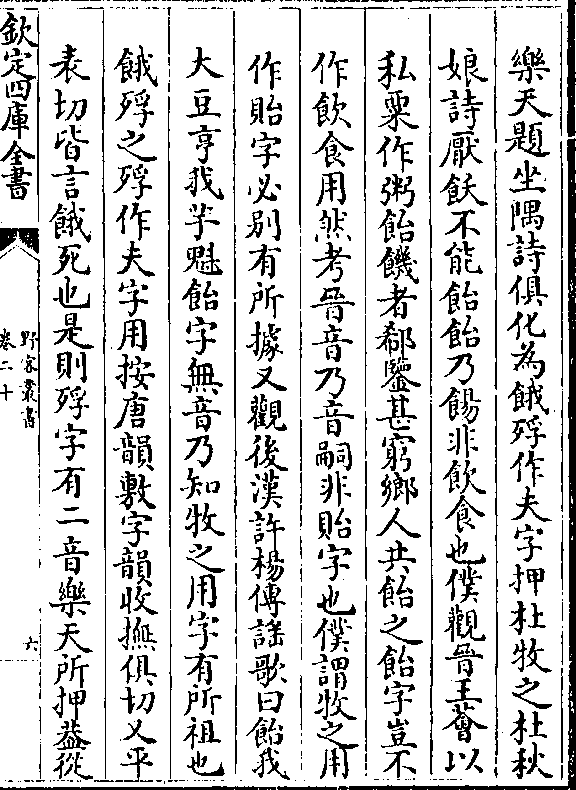 樂天題坐隅詩俱化為餓殍作夫字押杜牧之杜秋
娘詩厭飫不能飴飴乃餳非飲食也僕觀晉王薈以
私粟作粥飴饑者郗鑒甚窮鄉人共飴之飴字豈不
作飲食用然考晉音乃音嗣非貽字也僕謂牧之用
作貽字必别有所據又觀後漢許楊傳謡歌曰飴我
大豆亨我芋魁飴字無音乃知牧之用字有所祖也
餓殍之殍作夫字用按唐韻敷字韻收撫俱切又平
表切皆言餓死也是則殍字有二音樂天所押葢從
欽定四庫全書
野客叢書
卷二十
六